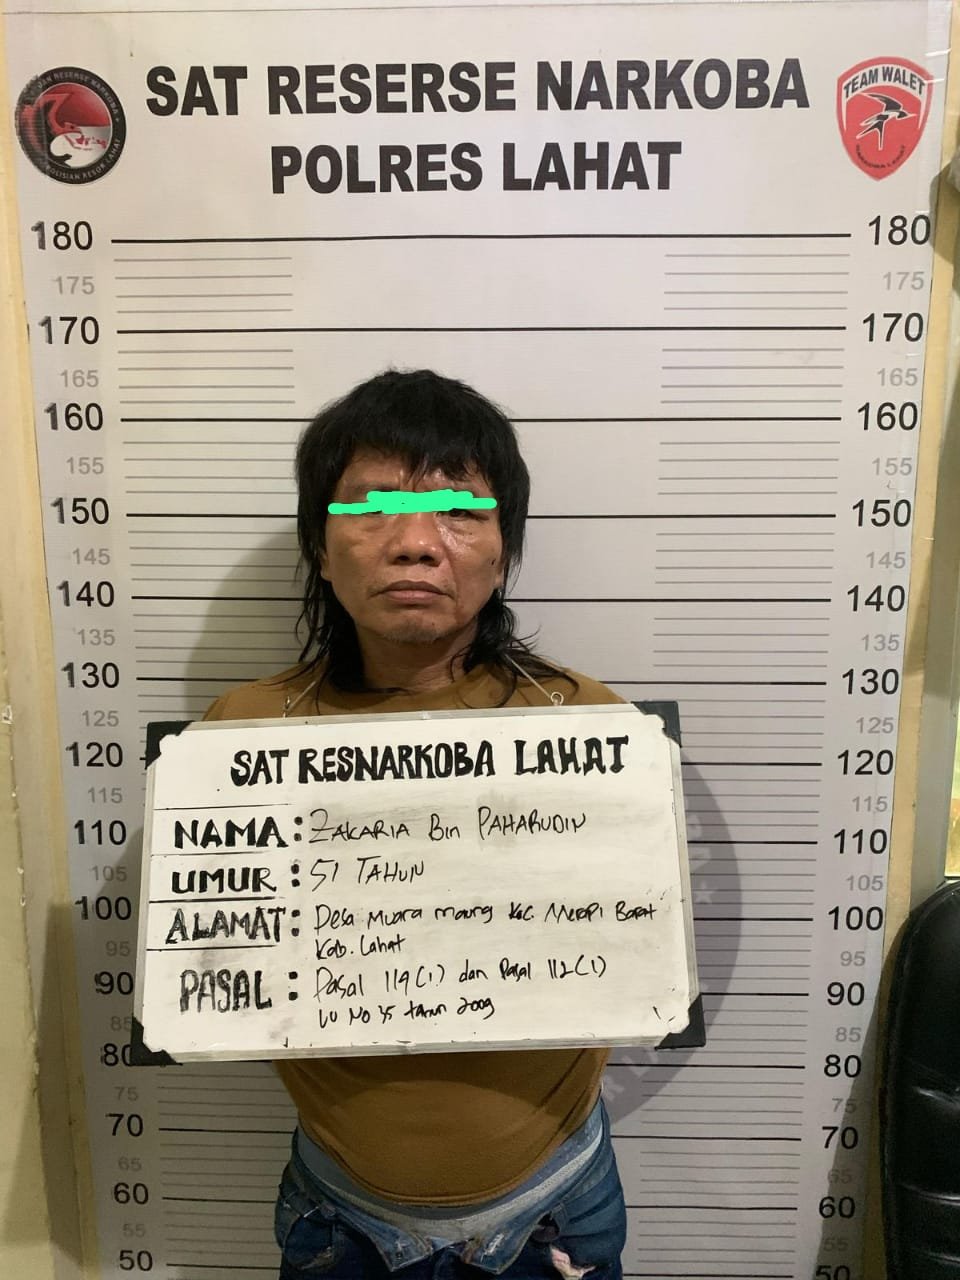 SAT RESERSE NARKOBA
POLRES LAHAT
TEAM WALET
NARKOBA LAHAT
180 180
175 175
170 170
165 165
160 160
155 155
150 150
145 145
140 140
135 135
130 130
125 125
120 120
115 115
110 110
105 105
100 100
95 95
90 90
85 85
80 80
75 75
70 70
65 65
60 60
55 55
50 50
SAT RESNARKOBA LAHAT
NAMA : ZAKARIA Bin PAHARUDIN
UMUR : 51 TAHUN
ALAMAT : Desa Muara maung Kec. Merapi Barat
Kab. Lahat
PASAL : Pasal 114 (1) dan Pasal 112 (1)
UU No 35 tahun 2009